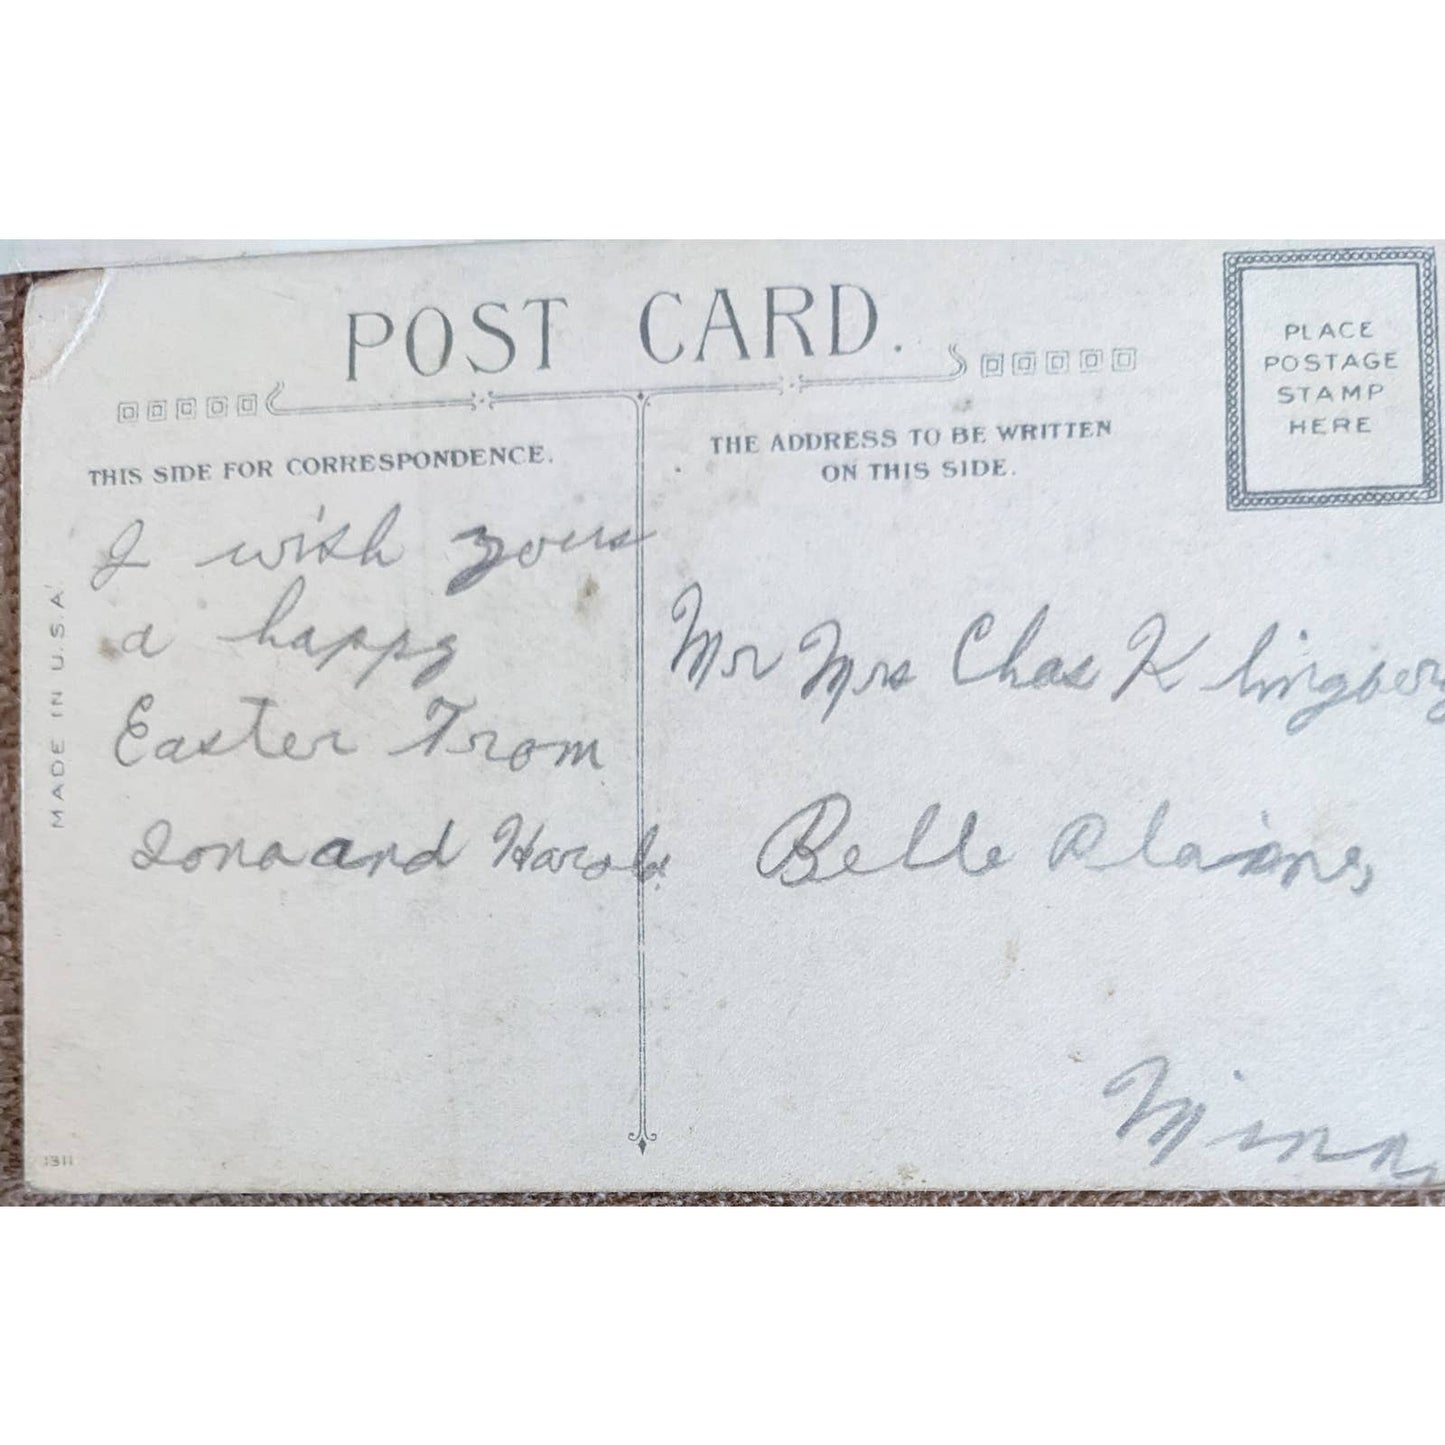 POST CARD.
THIS SIDE FOR CORRESPONDENCE.
THE ADDRESS TO BE WRITTEN
ON THIS SIDE.
PLACE
POSTAGE
STAMP
HERE
MADE IN U.S.A.
I wish yous
a happy
Easter From
Iona and Harold
Mr Mrs Chas Klingberg
Belle Plaine,
Minn,
1311